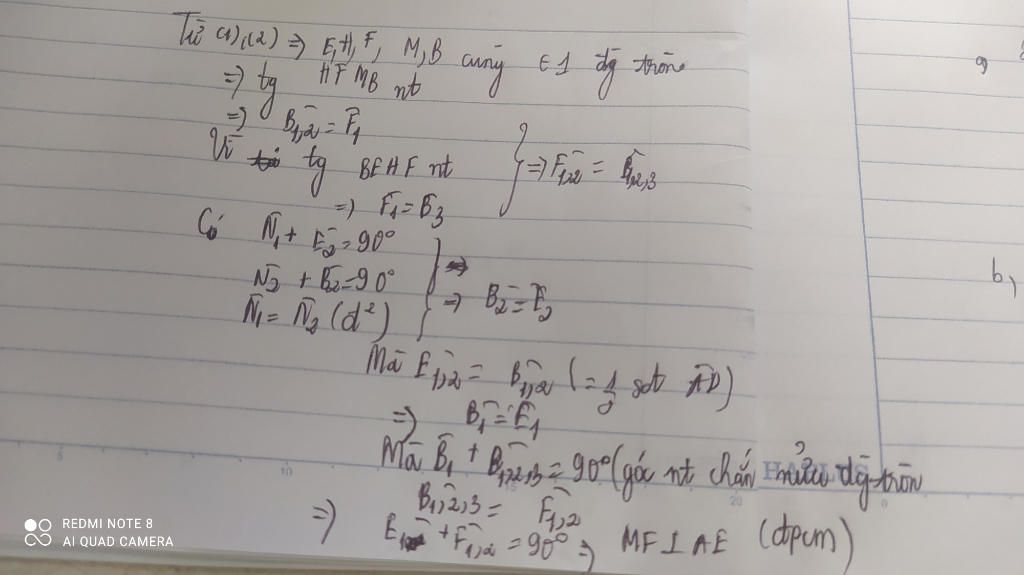 Từ (1),(2) => E,H,F, M,B cùng ∈ 1 đg tròn
=> tg HFMB nt
=> B̂1,2 = F̂1
Vì tg BEHF nt
=> F̂1 = B̂3
} => F̂1,2 = B̂1,2,3
Có N̂1 + Ê2 = 90°
N̂2 + B̂2 = 90°
N̂1 = N̂2 (đ²)
} => B̂2 = Ê2
Mà Ê1,2 = B̂1,2 (= 1/2 sđt AD)
=> B̂1 = Ê1
Mà B̂1 + B̂1,2,3 = 90° (góc nt chắn nửa đg tròn
B̂1,2,3 = F̂1,2
=> + F̂1,2 = 90° => MF ⊥ AE (đpcm)
b,
5
10
20
0
REDMI NOTE 8
AI QUAD CAMERA